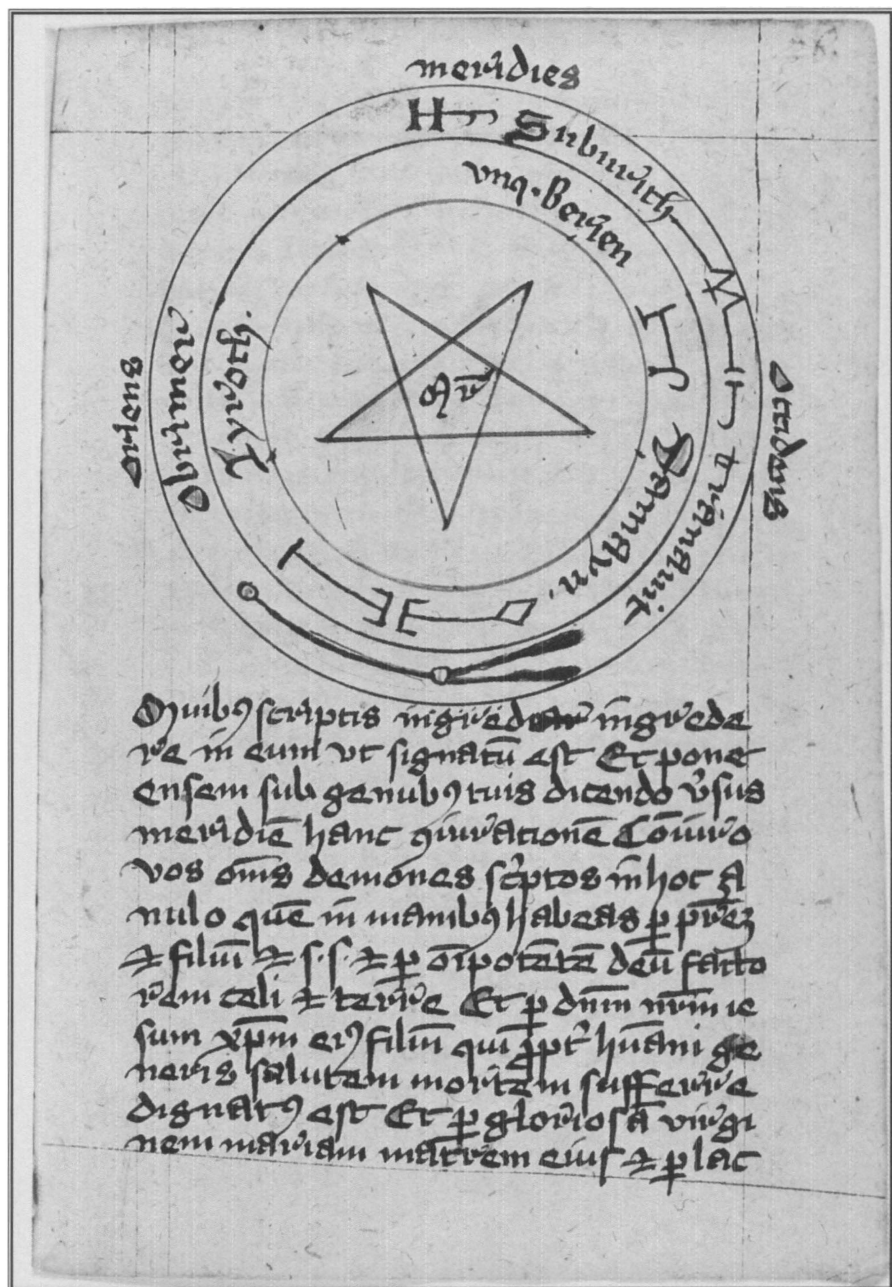 26.
meridies
Suburith
vnq. Berien
oriens
Obrimer
Tyroth.
mr
occidens
trianauit
Damayn.
Quibꝯ scriptis ingrede
re in eum vt signatū est Et pone
ensem sub genubꝯ tuis dicendo v̄sus
meridiē hanc ꝯiuracionē Cōiuro
vos om̄s demones sc̄ptos in hoc a
nulo quē in manibꝯ habeas ꝑ pr̄eꝫ
⁊ filiū ⁊ s. s. ⁊ ꝑ oīpotētē deū facto
rem celi ⁊ terre Et ꝑ dnm̄ nrm̄ ie
sum xp̄m eiꝯ filiū qui ꝓpt̄ hūani ge
neris salutem mortem sufferre
dignatꝯ est Et ꝑ gloriosā virgi
nem mariam matrem eius ⁊ ꝑ lac